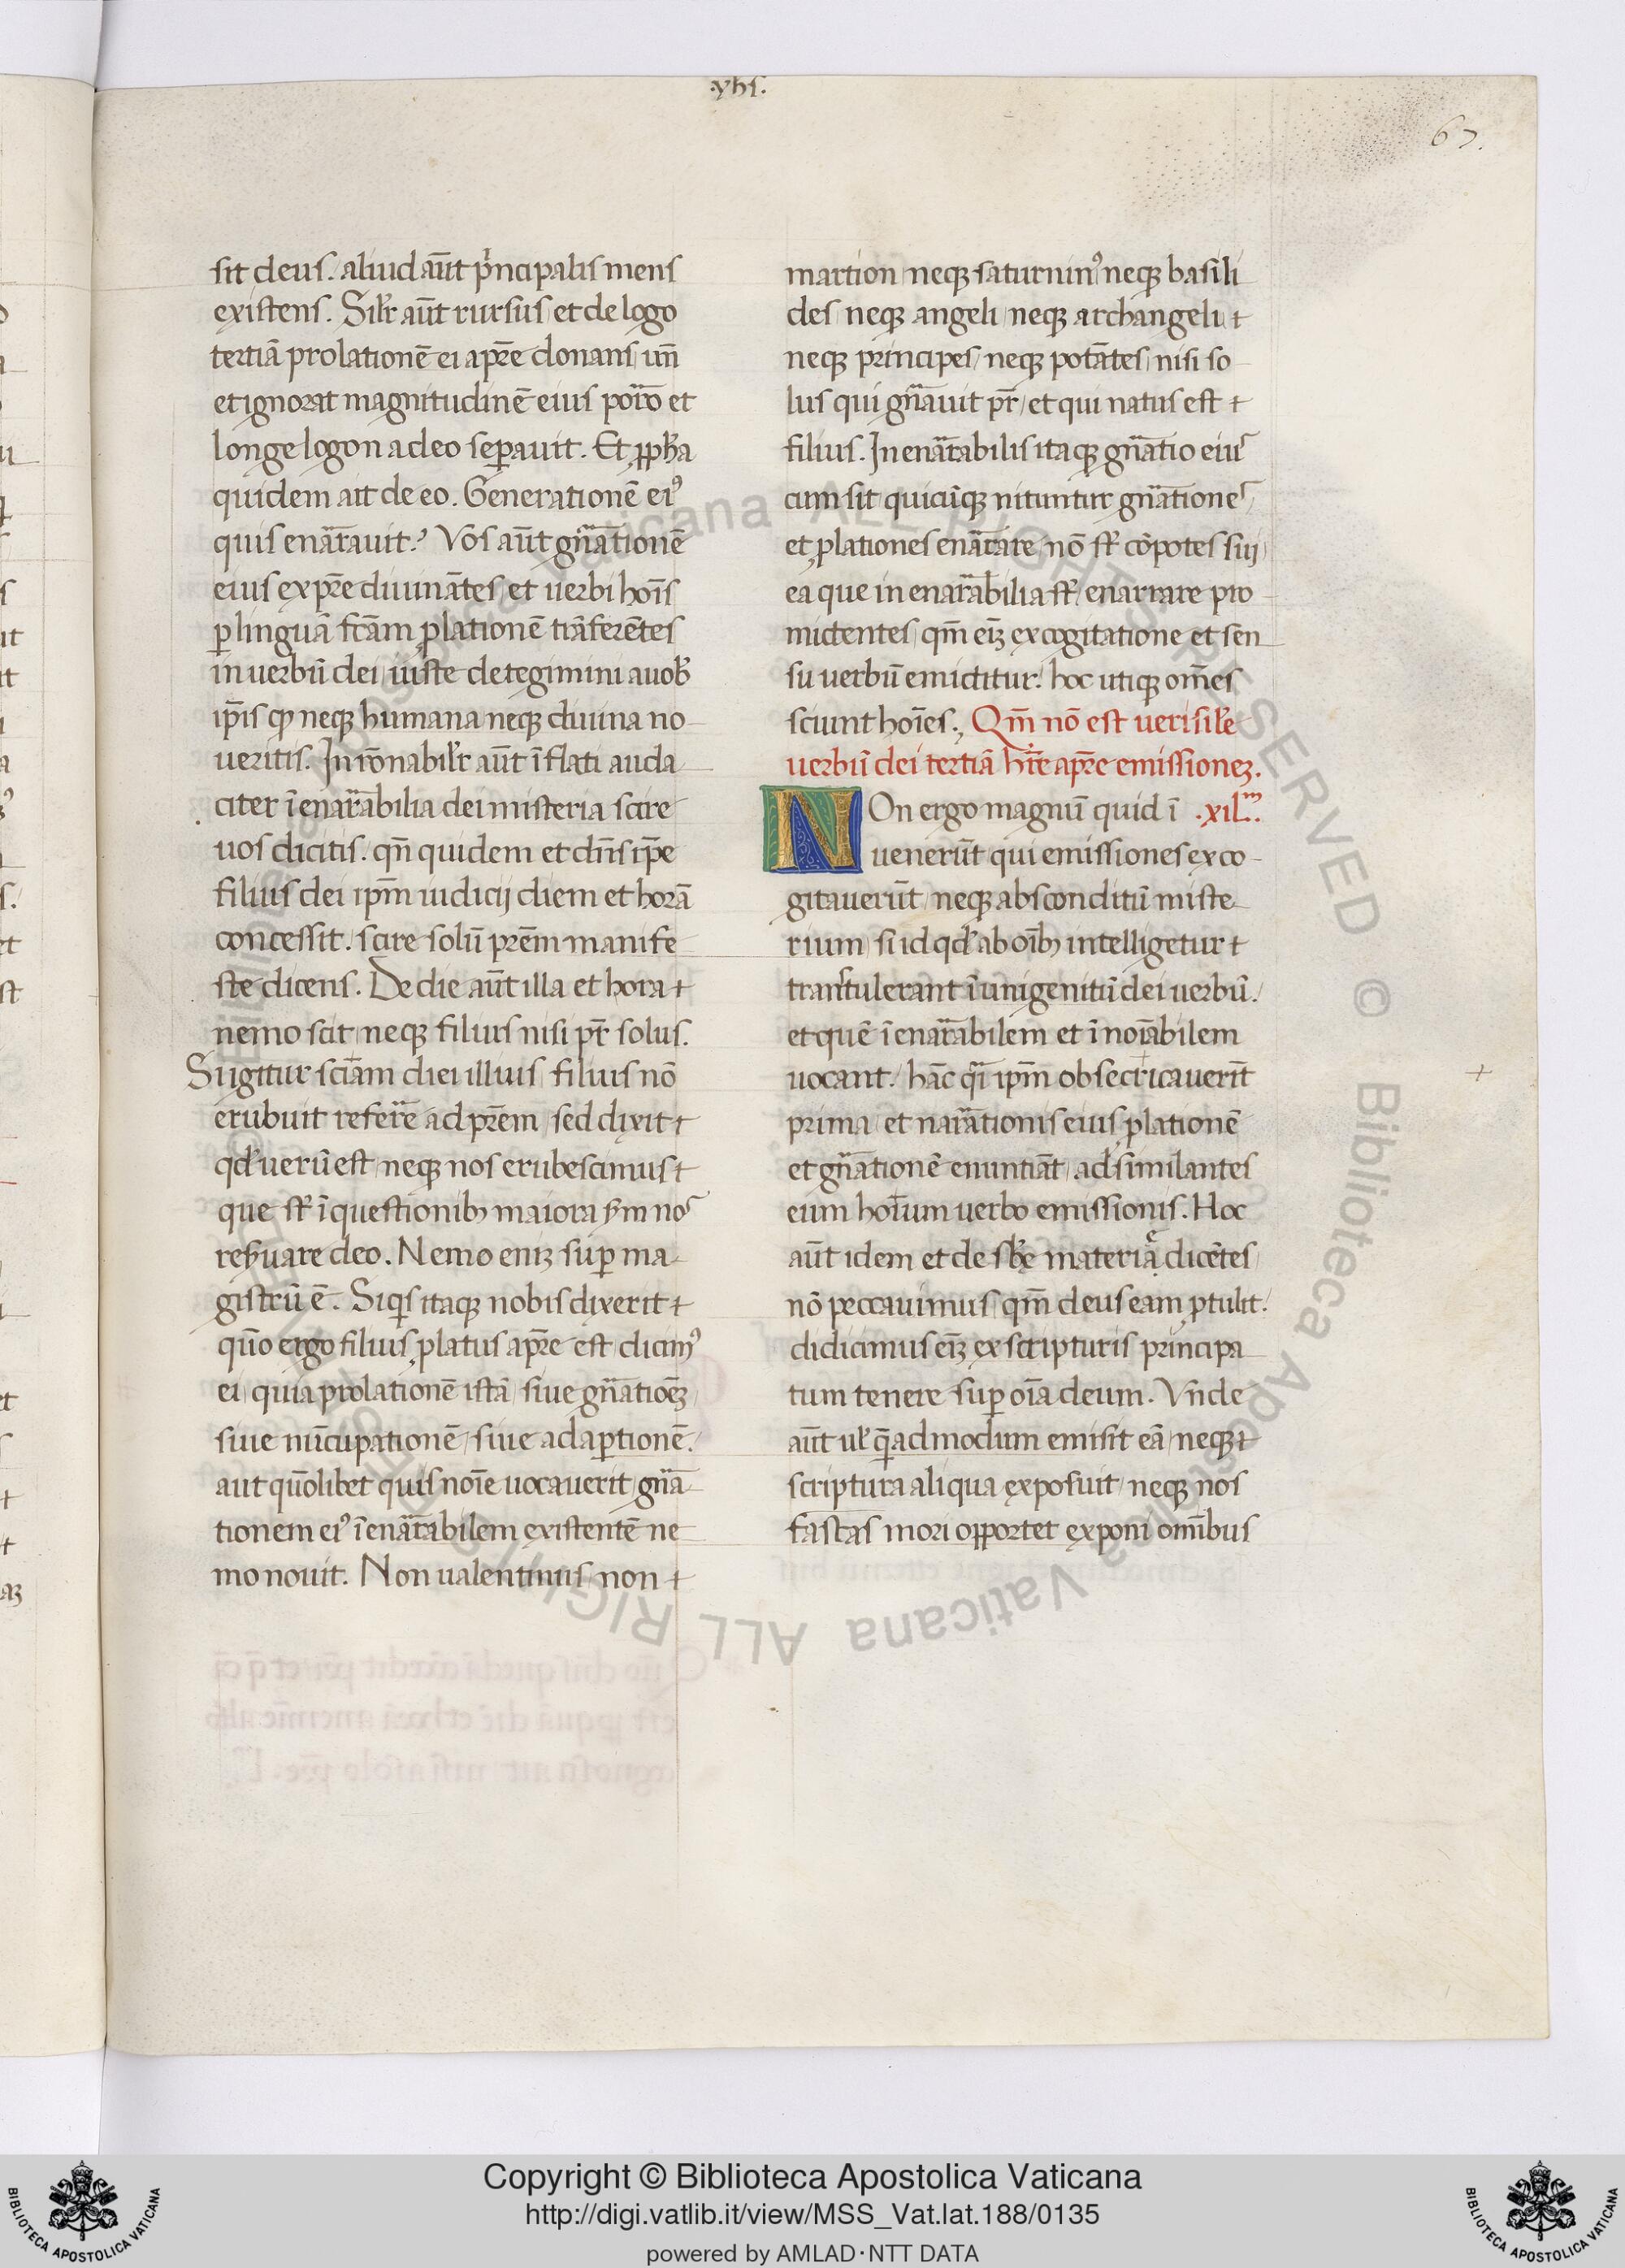 .yhs.
67.
sit deus. aliud aūt p̄ncipalis mens
existens. Silr̄ aūt rursus et de logo
tertiā prolationē ei a pr̄e donans un̄
et ignorat magnitudinē eius porro et
longe logon a deo sep̱auit. Et ꝓpħa
quidem ait de eo. Generationē eiꝰ
quis enar̄auit? Vos aūt gn̄ationē
eius ex pr̄e diuinātes et uerbi hoīs
ꝑ linguā fc̄am ꝓlationē trāferētes
in uerbū dei iuste detegimini a uob̄
ip̄is ꝙ neqꝫ humana neqꝫ diuina no
ueritis. Inrōnabilr̄ aūt īflati auda
citer īenar̄abilia dei misteria scire
uos dicitis. qn̄ quidem et dn̄s ip̄e
filius dei ip̄m iudicij diem et horā
concessit. scire solū pr̄em manife
ste dicens. De die aūt illa et hora
nemo scit neqꝫ filius nisi pr̄ solus.
Si igitur sciām diei illius filius nō
erubuit refer̄e ad pr̄em sed dixit
qđ uerū est neqꝫ nos erubescimus
que st̄ ī questionibꝫ maiora s̄m nos
res̄uare deo. Nemo enīꝫ suꝑ ma
gistrū ē. Siqis itaqꝫ nobis dixerit
quō ergo filius ꝓlatus a pr̄e est dicimꝰ
ei quia prolationē istā siue gn̄atioēꝫ
siue nūcupationē siue adaꝑtionē.
aut quōlibet quis noīe uocauerit gn̄a
tionem eiꝰ īenar̄abilem existentē ne
mo nouit. Non ualentinus non
martion neqꝫ saturninꝰ neqꝫ basili
des neqꝫ angeli neqꝫ archangeli
neqꝫ principes neqꝫ potātes nisi so
lus qui gn̄auit pr̄ et qui natus est
filius. Inenar̄abilis itaqꝫ gn̄atio eius
cum sit quicūqꝫ nituntur gn̄ationes
et ꝓlationes enar̄are nō st̄ cōpotes sui
ea que inenar̄abilia st̄ enarrare pro
mictentes qm̄ eīꝫ ex cogitatione et sen
su uerbū emictitur. hoc utiqꝫ om̄es
sciunt hoīes. Qm̄ nō est uerisile
uerbū dei tertiā hr̄e a pr̄e emissioneꝫ.
NOn ergo magnū quid ī .xil.m
uenerūt qui emissiones exco
gitauerūt neqꝫ absconditū miste
rium si id qđ ab oībꝫ intelligetur
transtulerant ī unigenitū dei uerbū.
et quē īenar̄abilem et īnoīabilem
uocant. hāc qi ip̄m obsectricauerīt
prima et nar̄ationis eius ꝓlationē
et gn̄ationē enuntiāt adsimilantes
eum hoīum uerbo emissionis. Hoc
aūt idem et de sb̄e materia dicētes
nō peccauimus qm̄ deus eam ꝓtulit.
didicimus eīꝫ ex scripturis principa
tum tenere suꝑ oīa deum. Vn̄de
aūt ul̄ q̄admodum emisit eā neqꝫ
scriptura aliqua exposuit neqꝫ nos
fastas mori opportet exponi omībus
Copyright © Biblioteca Apostolica Vaticana
http://digi.vatlib.it/view/MSS_Vat.lat.188/0135
powered by AMLAD·NTT DATA